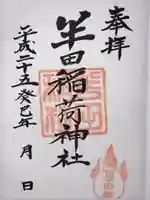 奉拝
半田稲荷神社
平成二十五癸巳年 月 日